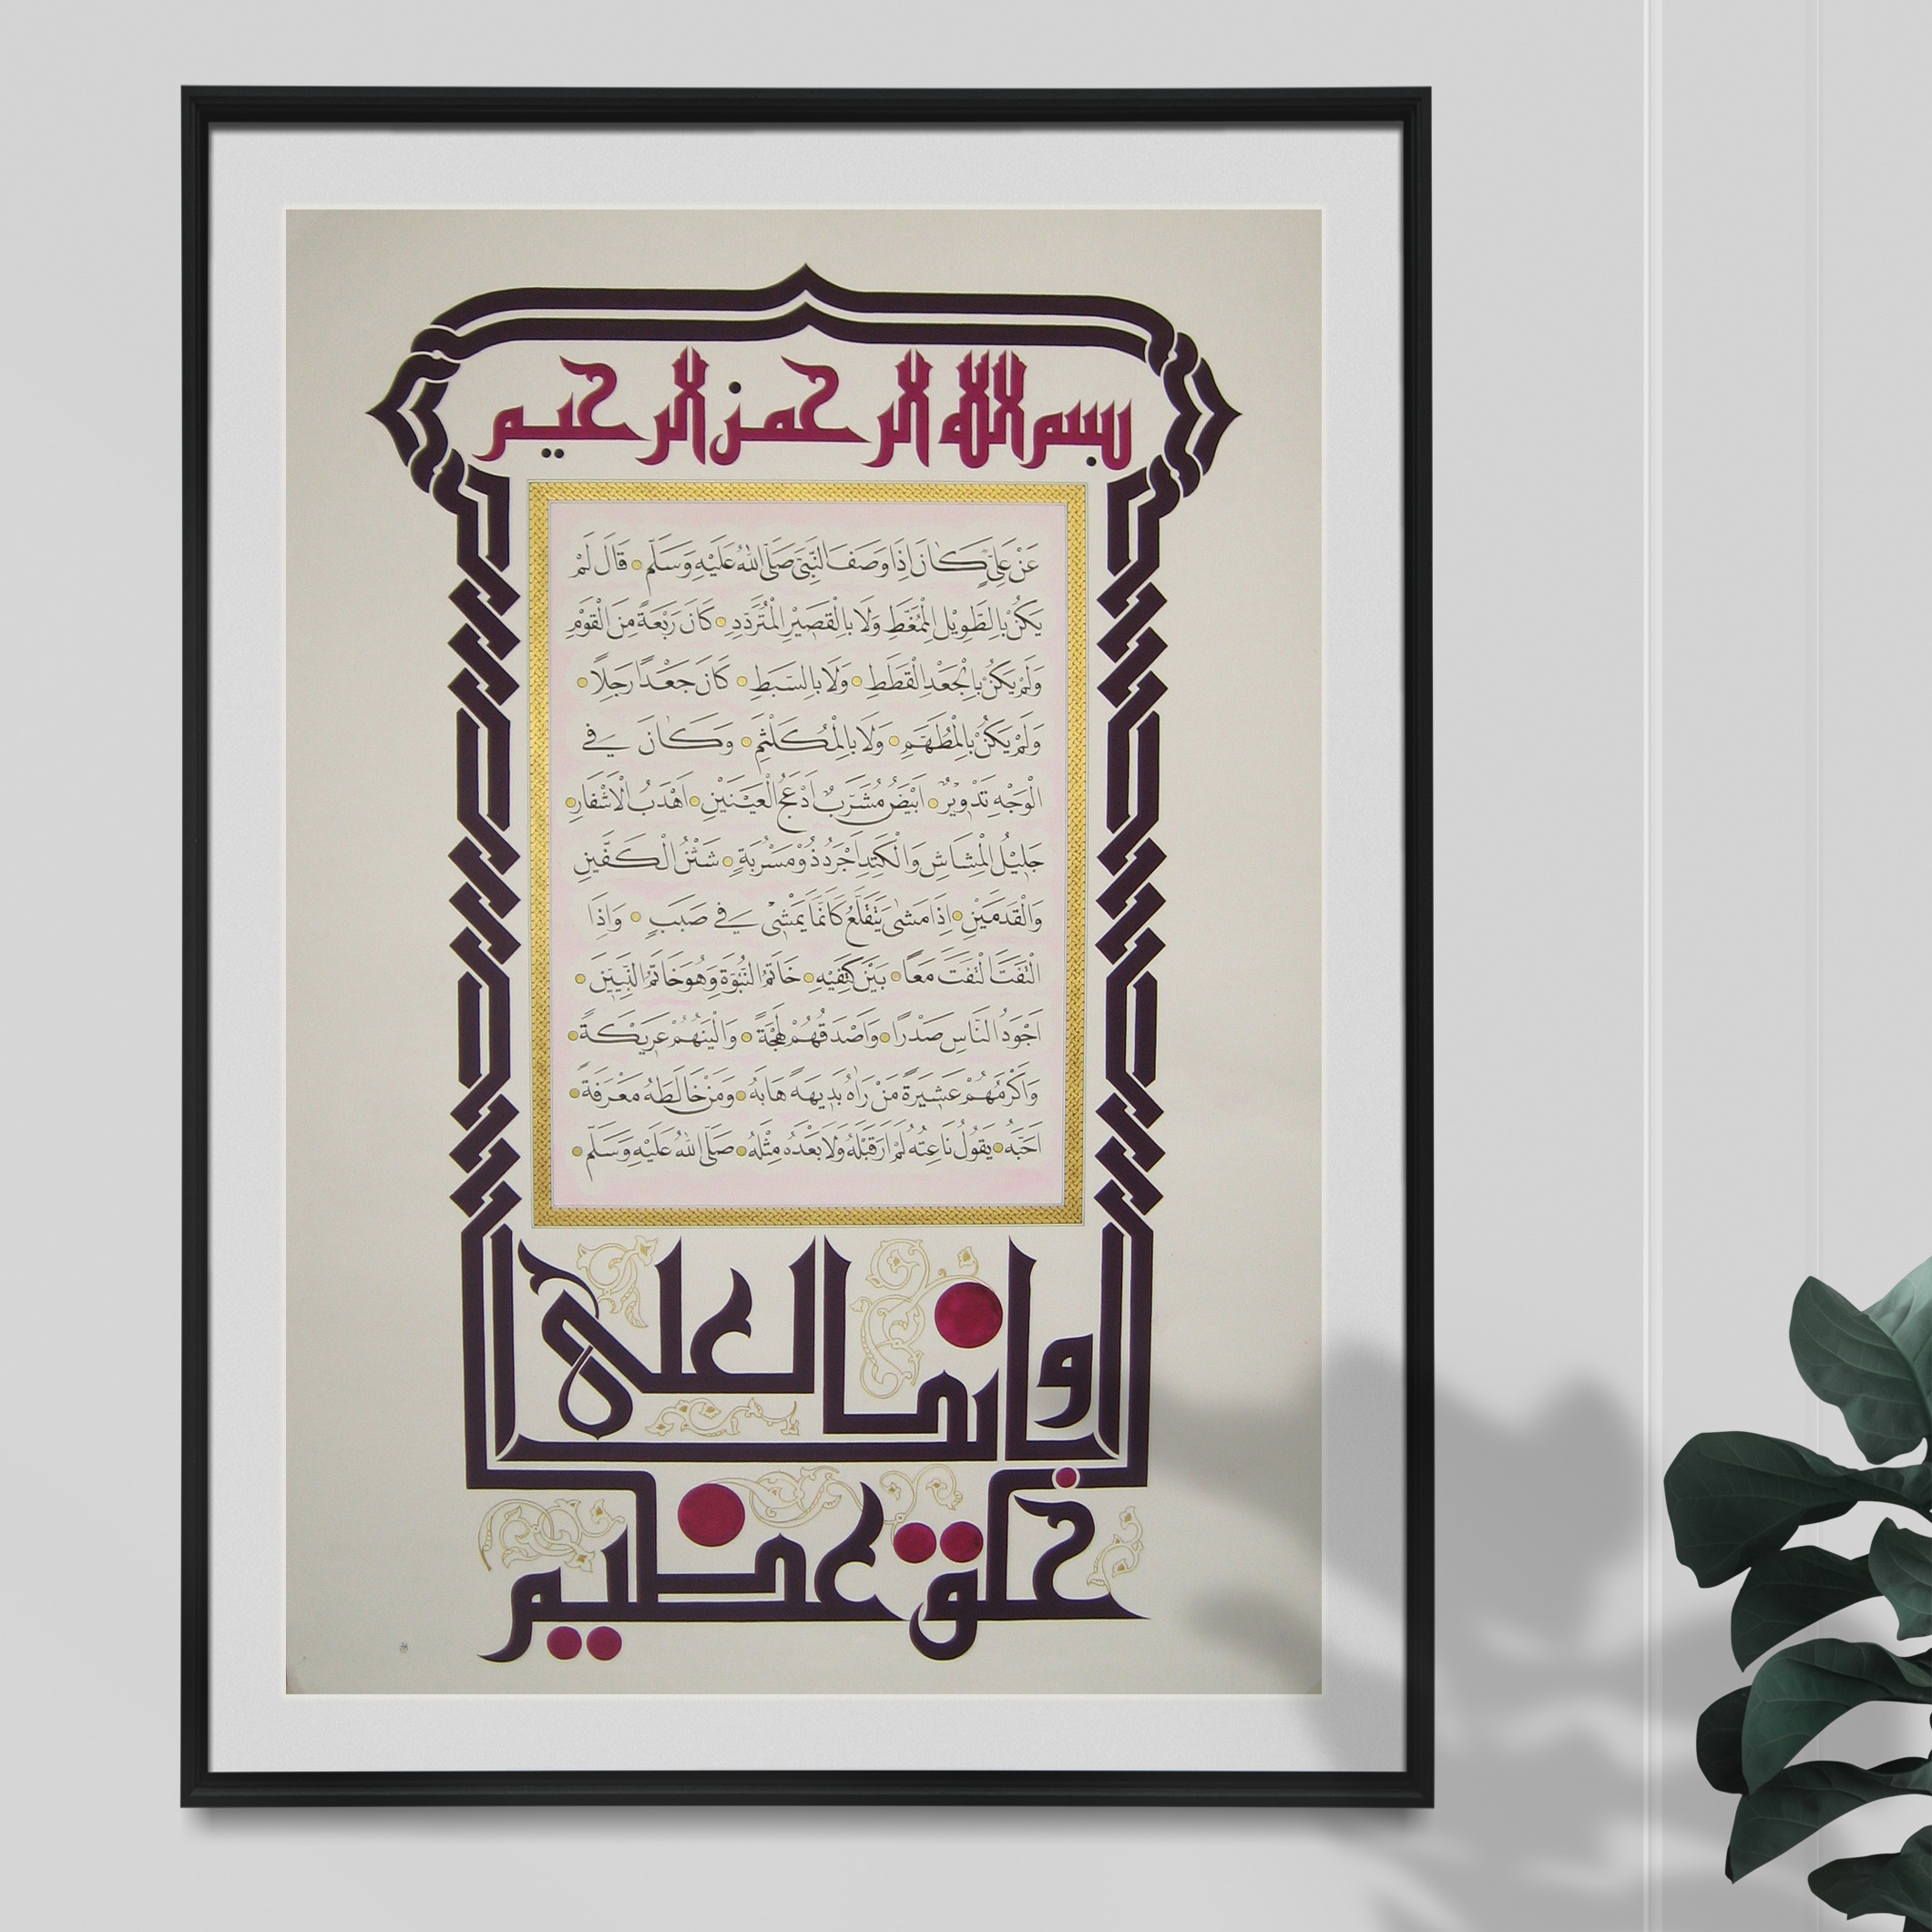 بسم الله الرحمن الرحيم
عَنْ عَلِيٍّ كَانَ اِذَا وَصَفَ النَّبِيَّ صَلَّى اللهُ عَلَيْهِ وَسَلَّمَ قَالَ لَمْ
يَكُنْ بِالطَّوِيْلِ الْمُمَّغِطِ وَلَا بِالْقَصِيْرِ الْمُتَرَدِّدِ كَانَ رَبْعَةً مِنَ الْقَوْمِ
وَلَمْ يَكُنْ بِالْجَعْدِ الْقَطَطِ وَلَا بِالسَّبِطِ كَانَ جَعْدًا رَجِلًا
وَلَمْ يَكُنْ بِالْمُطَهَّمِ وَلَا بِالْمُكَلْثَمِ وَكَانَ فِي
الْوَجْهِ تَدْوِيْرٌ اَبْيَضُ مُشَرَّبٌ اَدْعَجُ الْعَيْنَيْنِ اَهْدَبُ الْاَشْفَارِ
جَلِيْلُ الْمُشَاشِ وَالْكَتِدِ اَجْرَدُ ذُوْ مَسْرُبَةٍ شَثْنُ الْكَفَّيْنِ
وَالْقَدَمَيْنِ اِذَا مَشٰى يَتَقَلَّعُ كَاَنَّمَا يَمْشِيْ فِي صَبَبٍ وَاِذَا
الْتَفَتَ الْتَفَتَ مَعًا بَيْنَ كَتِفَيْهِ خَاتَمُ النُّبُوَّةِ وَهُوَ خَاتَمُ النَّبِيّيْنَ
اَجْوَدُ النَّاسِ صَدْرًا وَاَصْدَقُهُمْ لَهْجَةً وَاَلْيَنُهُمْ عَرِيْكَةً
وَاَكْرَمُهُمْ عَشِيْرَةً مَنْ رَاٰهُ بَدِيهَةً هَابَهُ وَمَنْ خَالَطَهُ مَعْرِفَةً
اَحَبَّهُ يَقُولُ نَاعِتُهُ لَمْ اَرَ قَبْلَهُ وَلَا بَعْدَهُ مِثْلَهُ صَلَّى اللهُ عَلَيْهِ وَسَلَّمَ
وانك لعلى
خلق عظيم